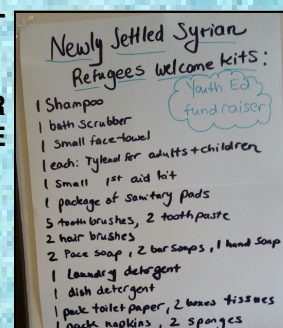 Newly Settled Syrian
Refugees welcome kits:
Youth Ed
fundraiser
1 Shampoo
1 bath scrubber
1 small face-towel
1 each: Tylenol for adults + children
1 small 1st aid kit
1 package of sanitary pads
5 toothbrushes, 2 toothpaste
2 hair brushes
2 face soap, 2 bar soaps, 1 hand soap
1 Laundry detergent
1 dish detergent
1 pack toilet paper, 2 boxes tissues
1 pack napkins, 2 sponges
R
E